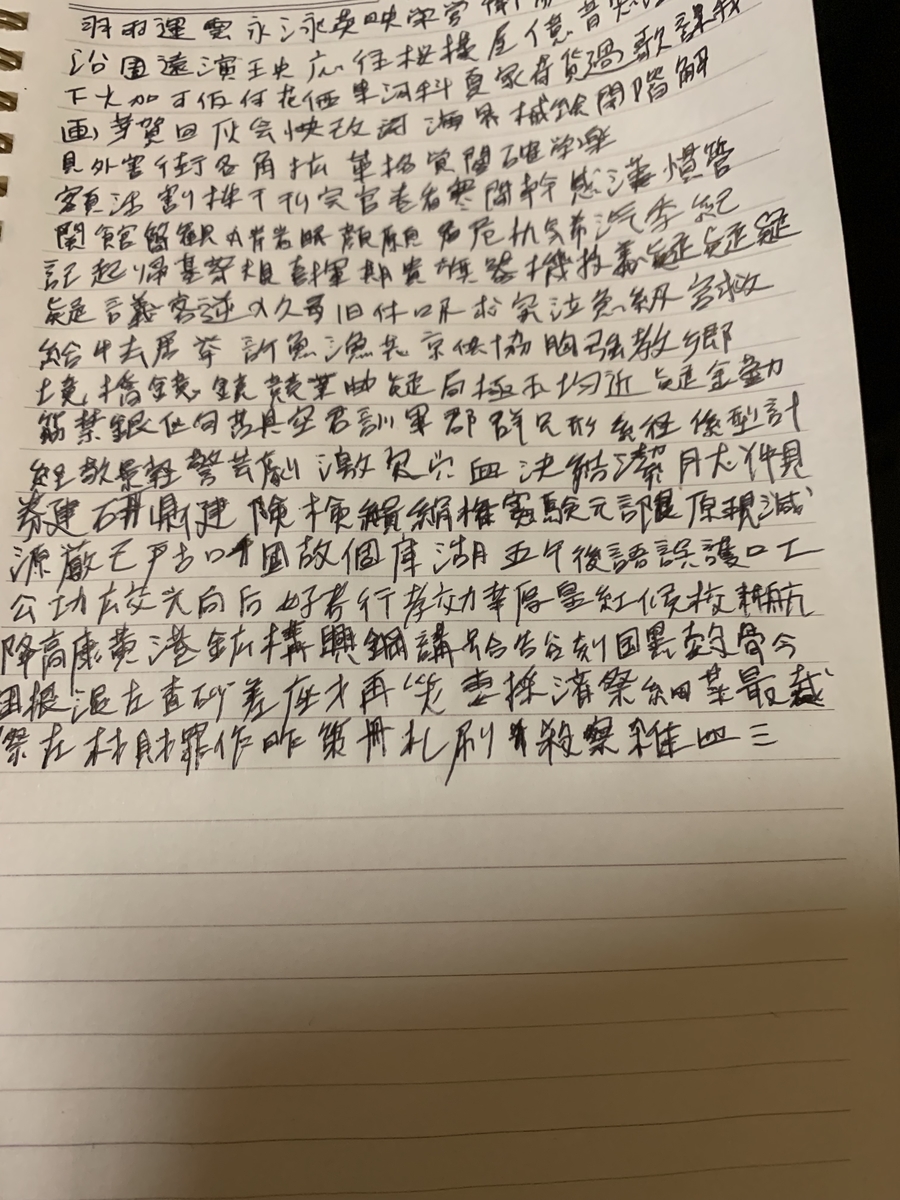 羽雨運雲永泳英映栄営衛
沿園遠演王央応往桜横屋億音
下火加可仮何花価果河科夏家荷貨過歌課我
画芽賀回灰会快改海界械絵開階解
貝外害街各角拡革格覚閣確学楽
額活割株干刊完官巻看寒間幹感漢慣管
関館簡観丸岸岩眼顔願危机気希汽季紀
記起帰基寄規喜揮期貴旗器機技義疑疑疑
疑議客逆久弓旧休吸求泣急級宮救
給牛去居挙許魚漁共京供協胸強教郷
境橋鏡鏡競業曲疑局極玉均近疑金勤
筋禁銀区句苦具空君訓軍郡群兄形系径係型計
経敬景軽警芸劇激欠穴血決結潔月犬件見
券建研県健険検絹権憲験元限原現減
源厳己戸古固故個庫湖五午後語誤護口工
公功広交光向后好考行孝効幸厚皇紅候校耕航
降高康黄港鉱構興鋼講合告谷刻国黒穀骨今
困根混左査砂差座才再災妻採済祭細菜最裁
際在材財罪作昨策冊札刷殺察雑皿三